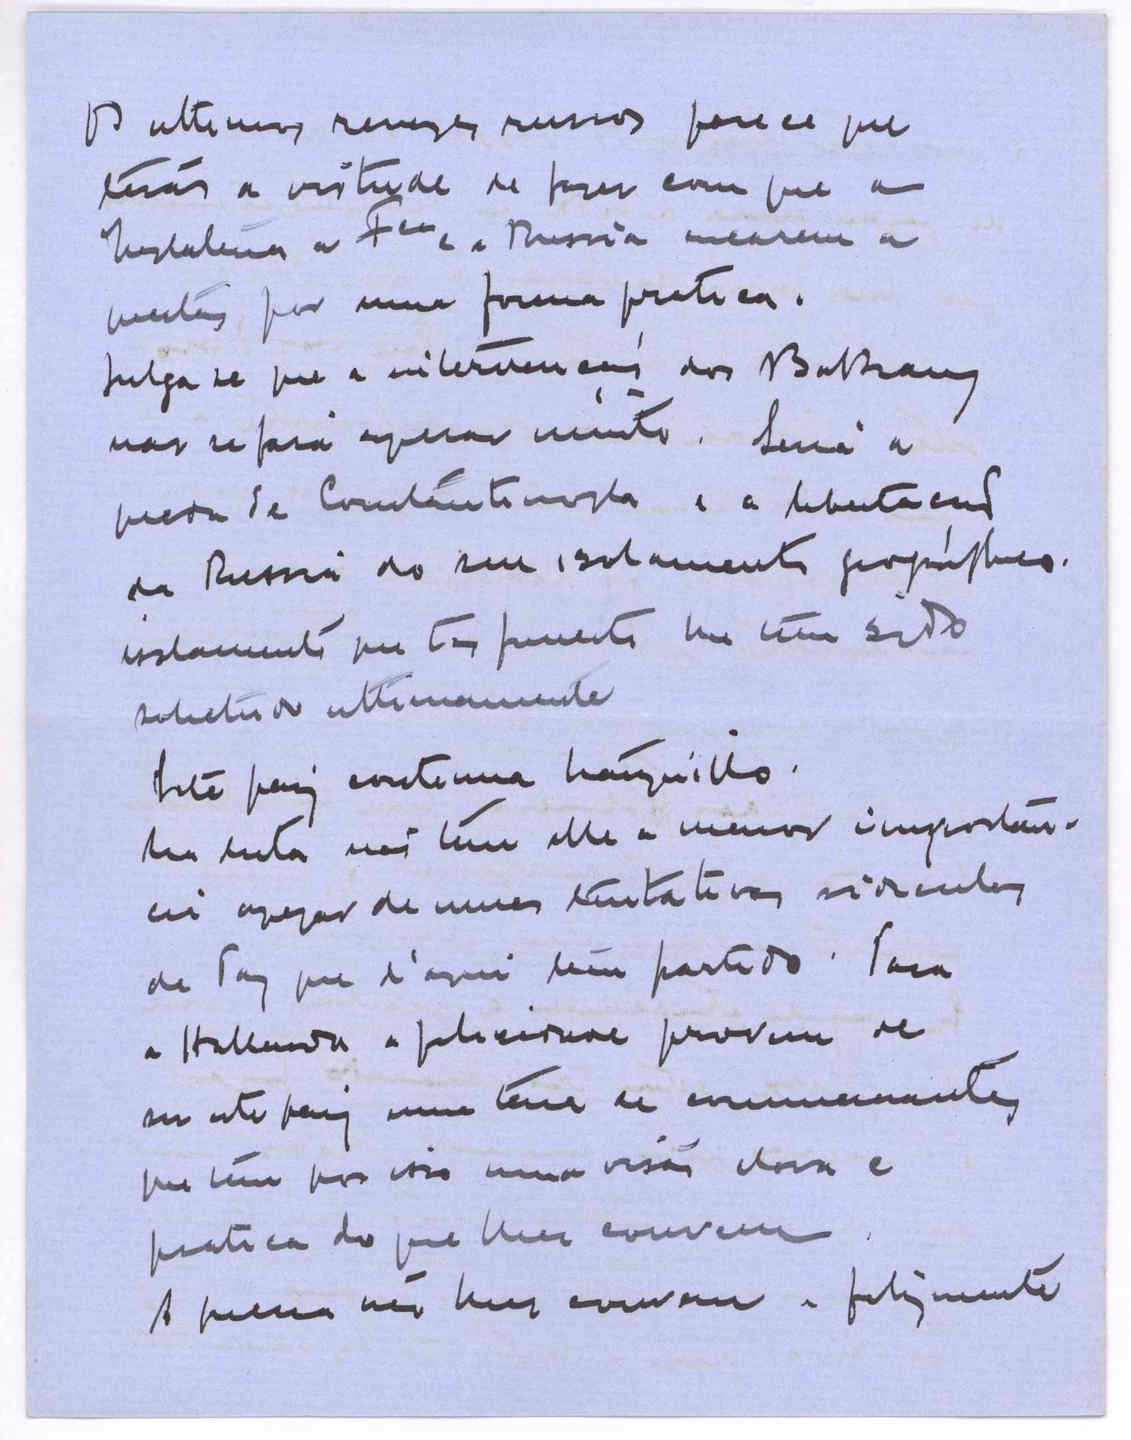 Os ultimos revezes russos parece que
terão a virtude de fazer com que a
Inglaterra a Fça e a Russia encarem a
questão por uma forma pratica.
Julga se que a intervenção dos Balkans
não se fará esperar muito. Será a
queda de Constantinopla e a libertação
da Russia do seu isolamento geographico.
isolamento que tão funesto lhe tem sido
sobretudo ultimamente
Este paiz continua tranquillo.
Na luta não tem elle a menor importan-
cia apezar de umas tentativas ridiculas
de Paz que d'aqui tem partido. Para
a Hollanda a felicidade provem de
ser este paiz uma terra de commerciantes
que tem por isso uma visão clara e
pratica do que lhes convem.
A guerra não lhes convem e felizmente